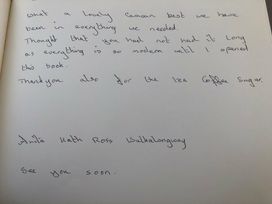 What a lovely Caravan best we have
been in everything we needed.
Thought that you had not had it long
as everything is so modern until I opened
this book.
Thankyou also for the Tea Coffee Sugar.
Anita Keith Ross
See you soon.